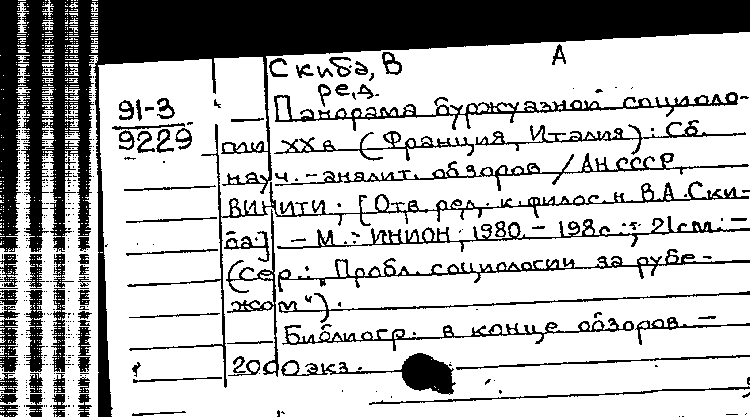 Скиба, В А
ред.
91-3
9229
Панорама буржуазной социоло-
гии XX в (Франция, Италия): Сб.
науч.-аналит. обзоров / АН СССР,
ВИНИТИ; [Отв. ред. к. филос. н. В.А. Ски-
ба] - М.: ИНИОН; 1980. - 198 с.; 21 см. -
(Сер.: "Пробл. социологии за рубе-
жом").
Библиогр. в конце обзоров. -
2000 экз.